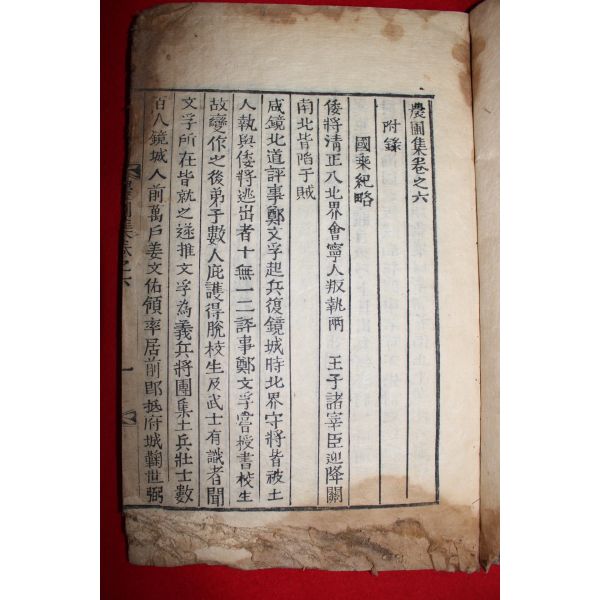 農圃集卷之六
附錄
國乘紀略
倭將淸正入北界會寧人叛執兩 王子諸宰臣迎降關
南北皆陷于賊
咸鏡北道評事鄭文孚起兵復鏡城時北界守將皆被土
人執與倭將逃出者十無一二評事鄭文孚嘗授書校生
故變作之後弟子數人庇護得脫校生及武士有識者聞
文孚所在皆就之遂推文孚為義兵將團集土兵壯士數
百人鏡城人前萬戶姜文佑領率居前即抵府城鞠世弼
農圃集卷之六 一